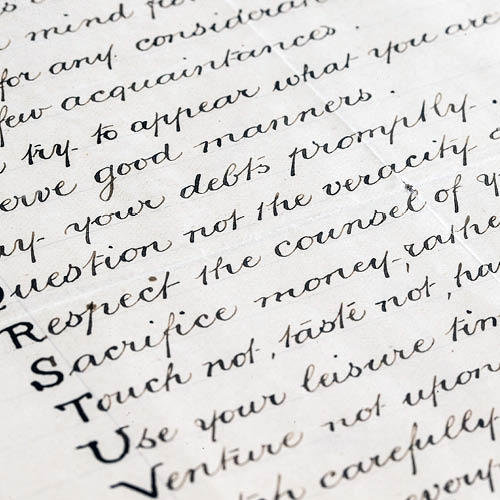 mind
for any
few acquaintances.
try to appear what you are
good manners.
your debts promptly.
Question not the veracity
Respect the counsel of
Sacrifice money, rathe
Touch not, taste not, ha
Use your leisure tim
Venture not upon
carefully